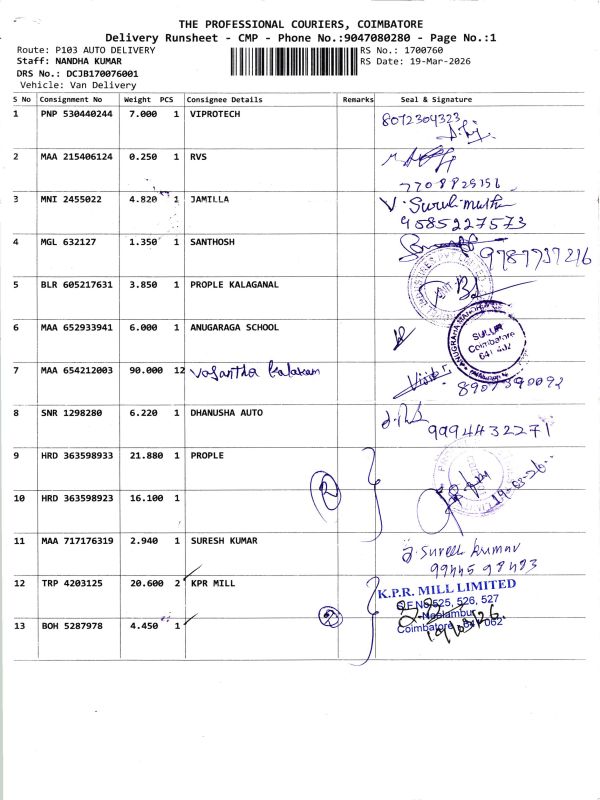 THE PROFESSIONAL COURIERS, COIMBATORE
Delivery Runsheet - CMP - Phone No.:9047080280 - Page No.:1
Route: P103 AUTO DELIVERY RS No.: 1700760
Staff: NANDHA KUMAR RS Date: 19-Mar-2026
DRS No.: DCJB170076001
Vehicle: Van Delivery
S No Consignment No Weight PCS Consignee Details Remarks Seal & Signature
1 PNP 530440244 7.000 1 VIPROTECH 8072304323
2 MAA 215406124 0.250 1 RVS
7708825156
3 MNI 2455022 4.820 1 JAMILLA
9585227573
4 MGL 632127 1.350 1 SANTHOSH
9787737216
5 BLR 605217631 3.850 1 PROPLE KALAGANAL
6 MAA 652933941 6.000 1 ANUGARAGA SCHOOL
SULUR
Coimbatore
7 MAA 654212003 90.000 12 Vasantha
8 SNR 1298280 6.220 1 DHANUSHA AUTO
9994432271
9 HRD 363598933 21.880 1 PROPLE
2 19-03-26
10 HRD 363598923 16.100 1
11 MAA 717176319 2.940 1 SURESH KUMAR
J. Suresh kumar
12 TRP 4203125 20.600 2 KPR MILL
K.P.R. MILL LIMITED
525, 526, 527
Neelambur
Coimbatore
13 BOH 5287978 4.450 1 2
19/03/26